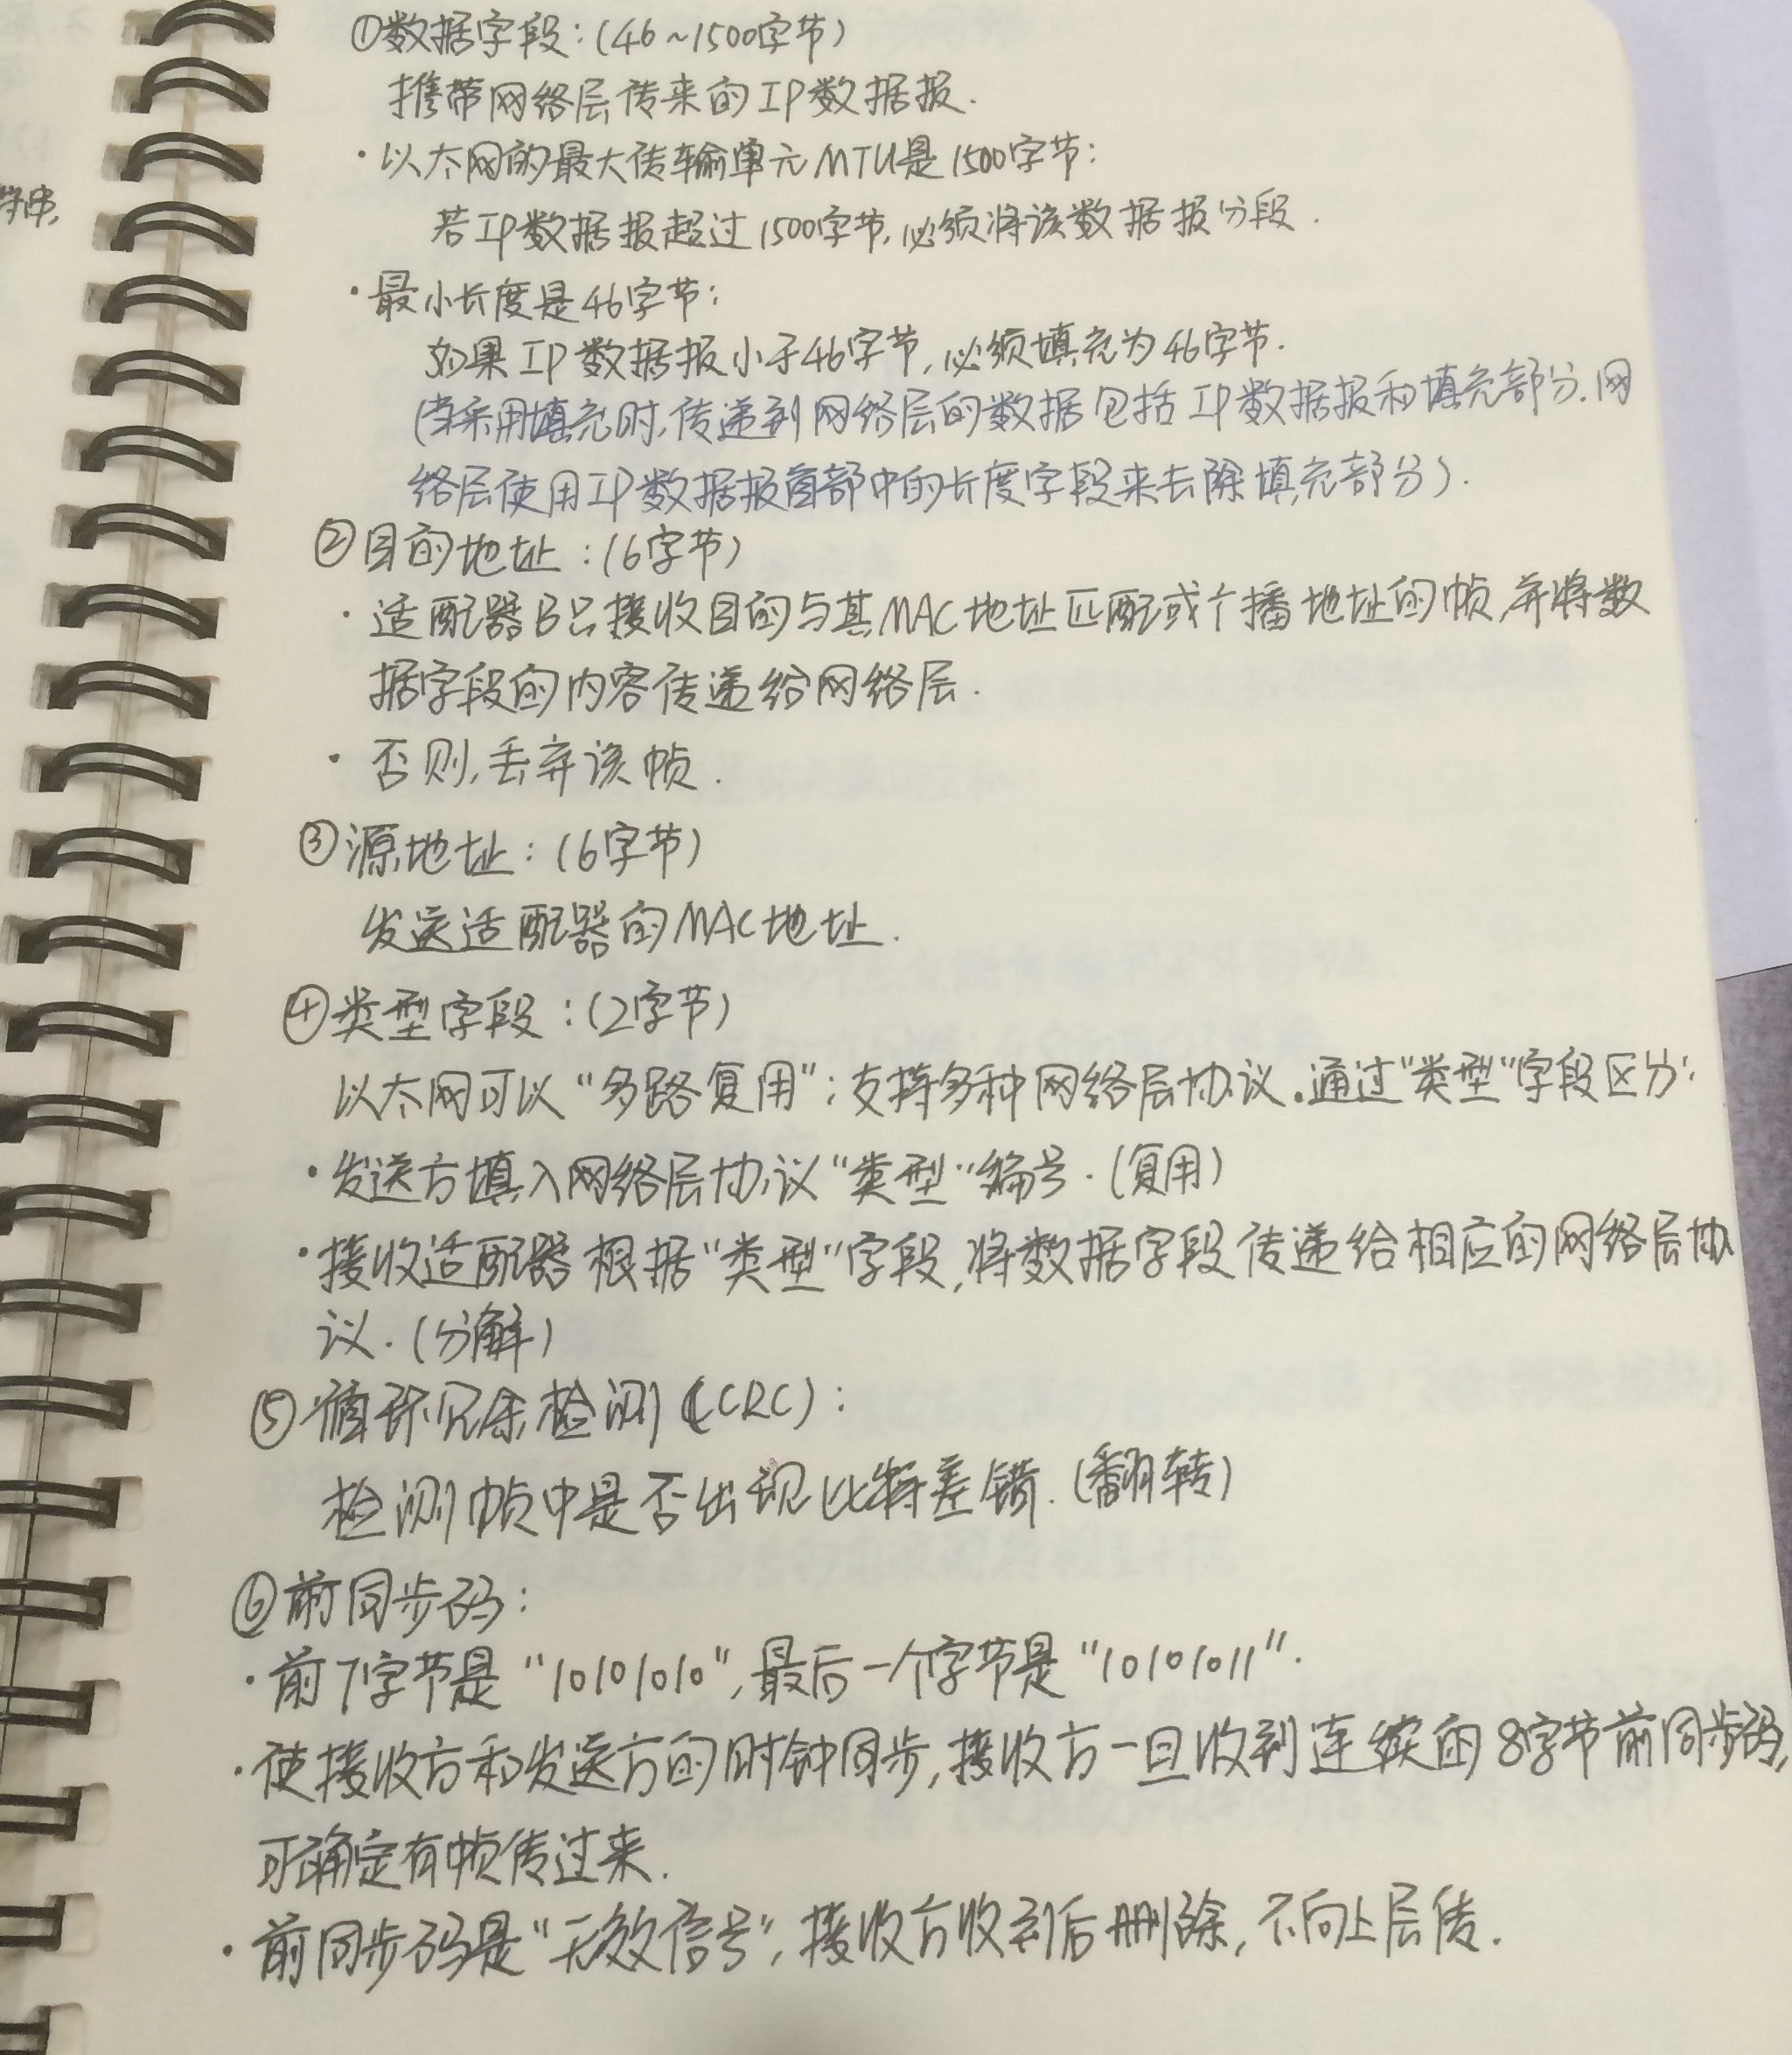 ①数据字段：(46~1500字节)
携带网络层传来的IP数据报.
·以太网的最大传输单元MTU是1500字节：
若IP数据报超过1500字节,必须将该数据报分段.
·最小长度是46字节：
如果IP数据报小于46字节,必须填充为46字节.
(当采用填充时,传递到网络层的数据包括IP数据报和填充部分.网
络层使用IP数据报首部中的长度字段来去除填充部分).
②目的地址：(6字节)
·适配器B只接收目的与其MAC地址匹配或广播地址的帧,并将数
据字段的内容传递给网络层.
·否则,丢弃该帧.
③源地址：(6字节)
发送适配器的MAC地址.
④类型字段：(2字节)
以太网可以“多路复用”；支持多种网络层协议.通过“类型”字段区分.
·发送方填入网络层协议“类型”编号.(复用)
·接收适配器根据“类型”字段,将数据字段传递给相应的网络层协
议.(分解)
⑤循环冗余检测(CRC)：
检测帧中是否出现比特差错.(翻转)
⑥前同步码：
·前7字节是“10101010”,最后一个字节是“10101011”.
·使接收方和发送方的时钟同步,接收方一旦收到连续的8字节前同步码,
可确定有帧传过来.
·前同步码是“无效信号”,接收方收到后删除,不向上层传.